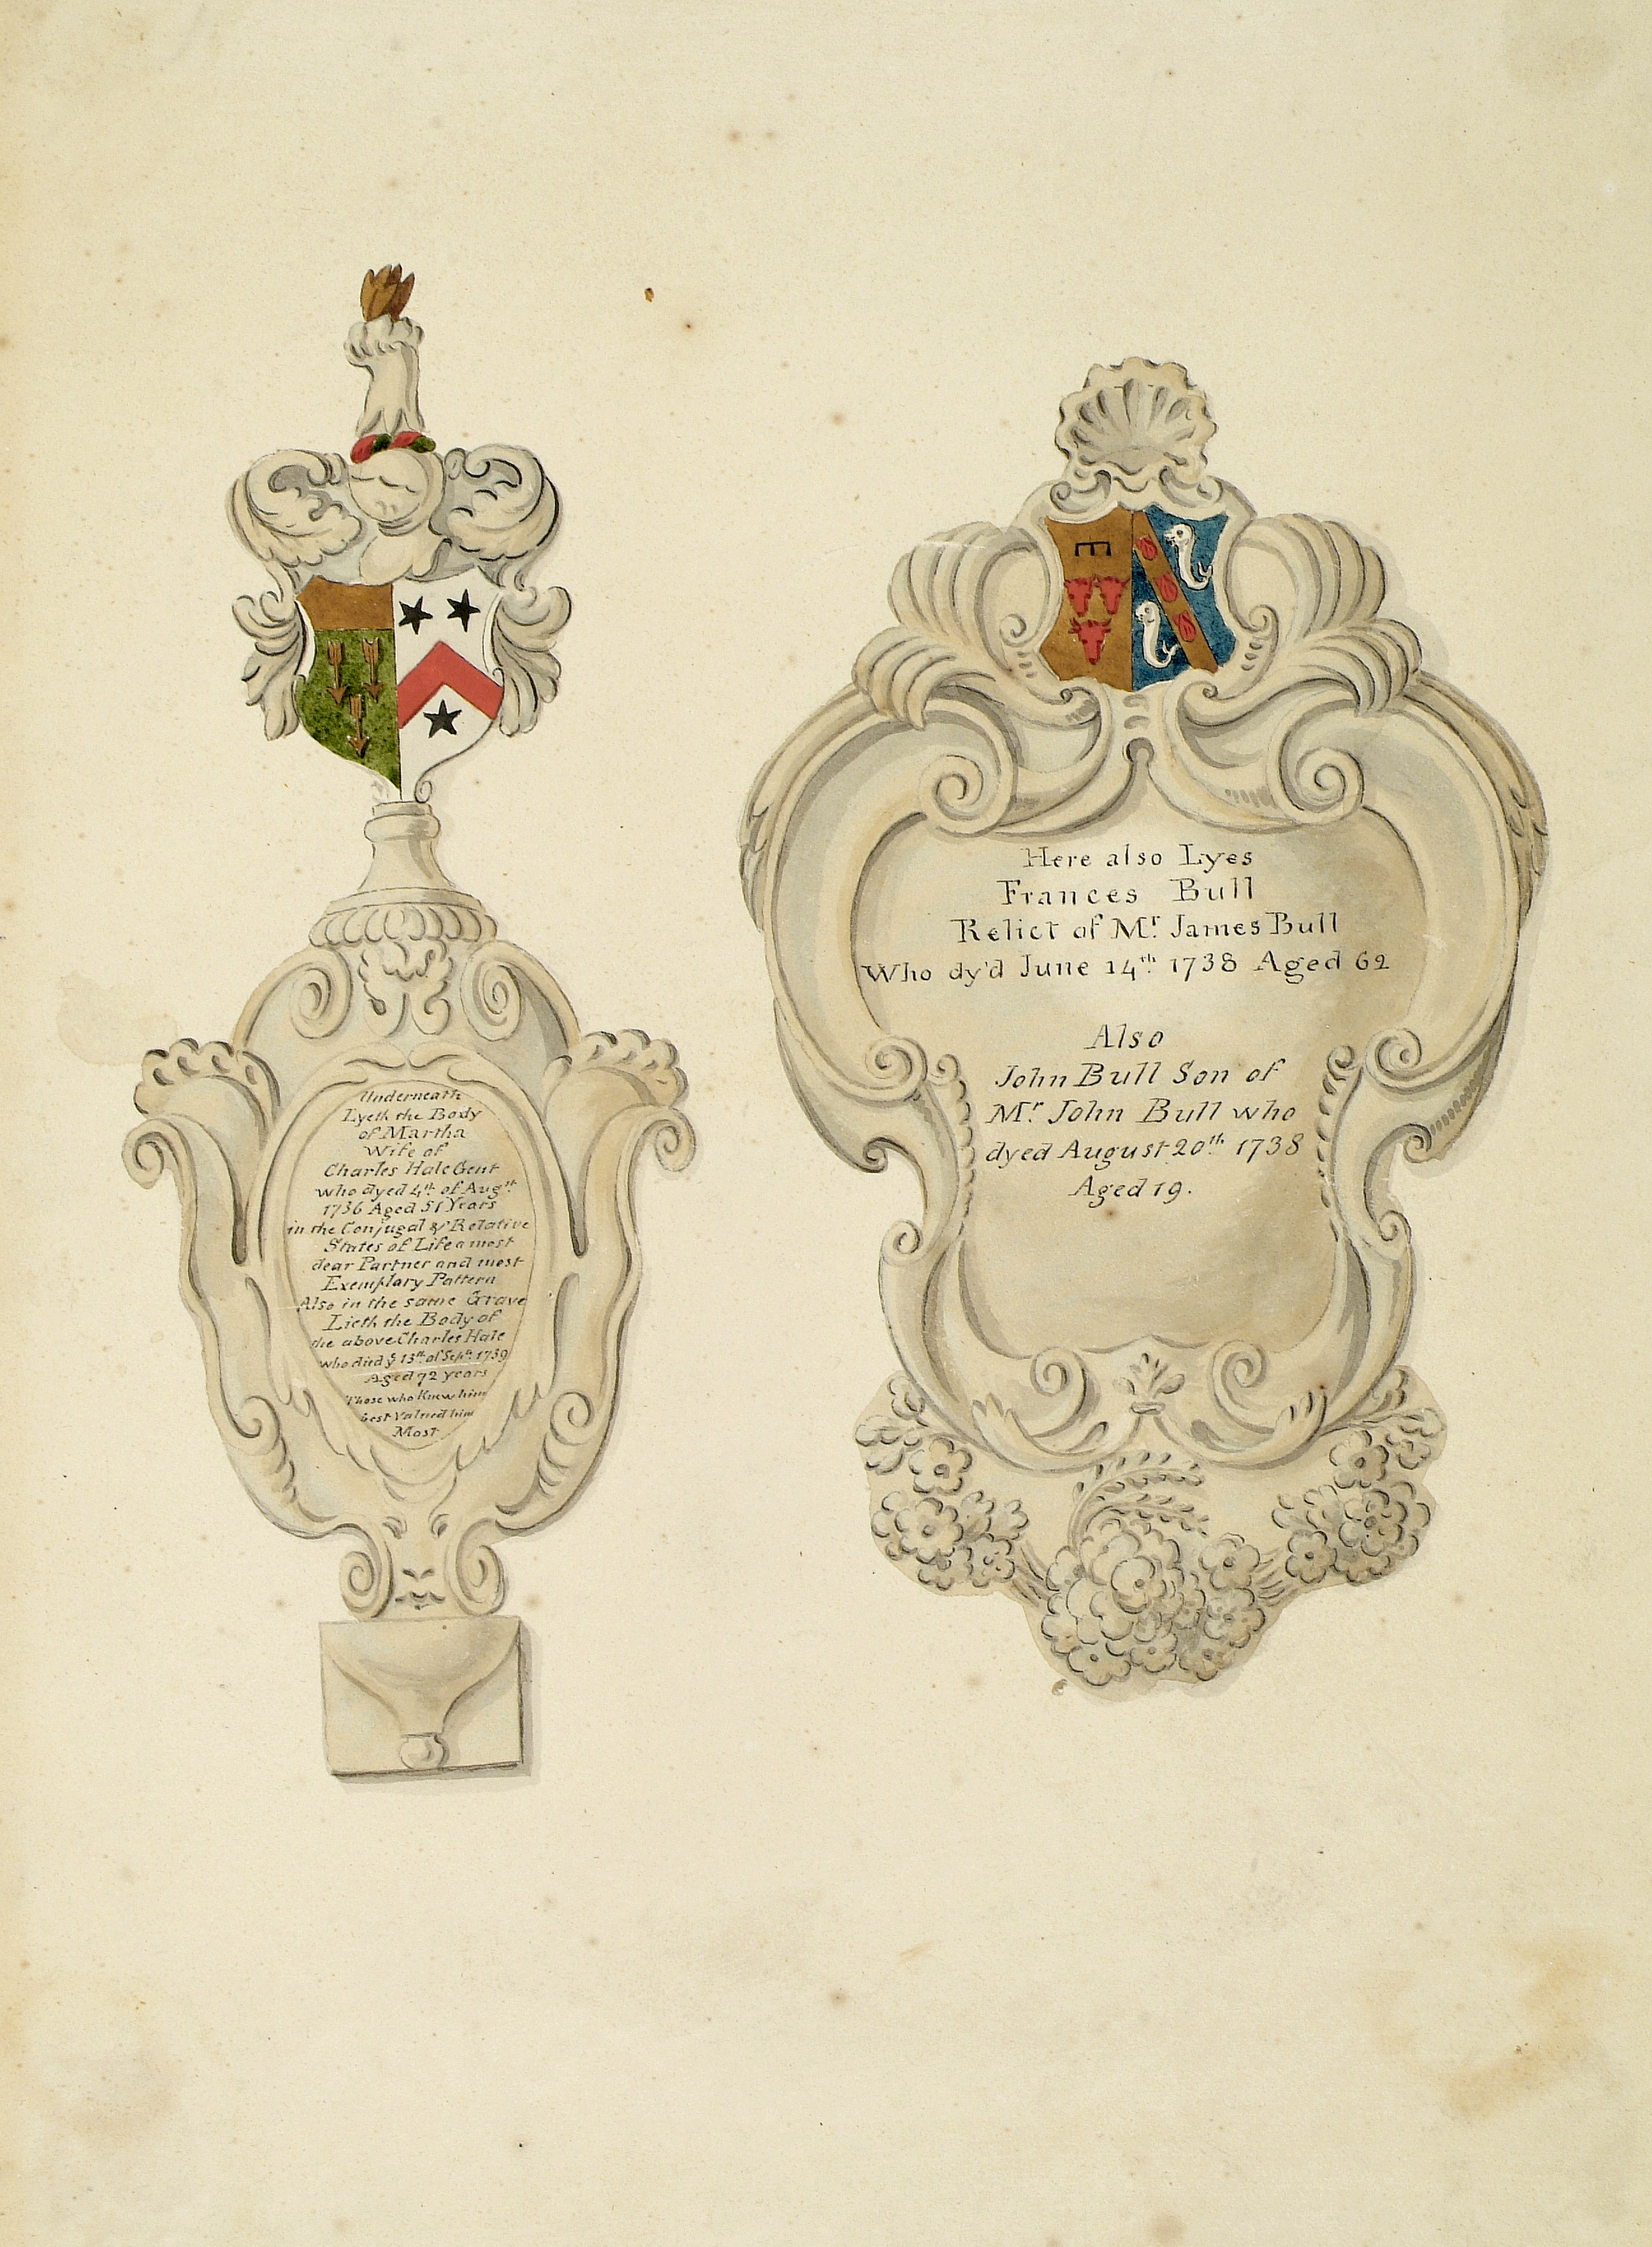 Underneath
Lyeth the Body
of Martha
Wife of
Charles Hale Gent
who dyed 4th of Augst
1736 Aged 51 Years
in the Conjugal & Relative
States of Life a most
dear Partner and most
Exemplary Pattern
Also in the same Grave
Lieth the Body of
the above Charles Hale
who died ye 13th of Septr 1739
Aged 72 years
Those who Knew him
best Valued him
Most
Here also Lyes
Frances Bull
Relict of Mr. James Bull
Who dy'd June 14th 1738 Aged 62
Also
John Bull Son of
Mr John Bull who
dyed August 20th 1738
Aged 19.